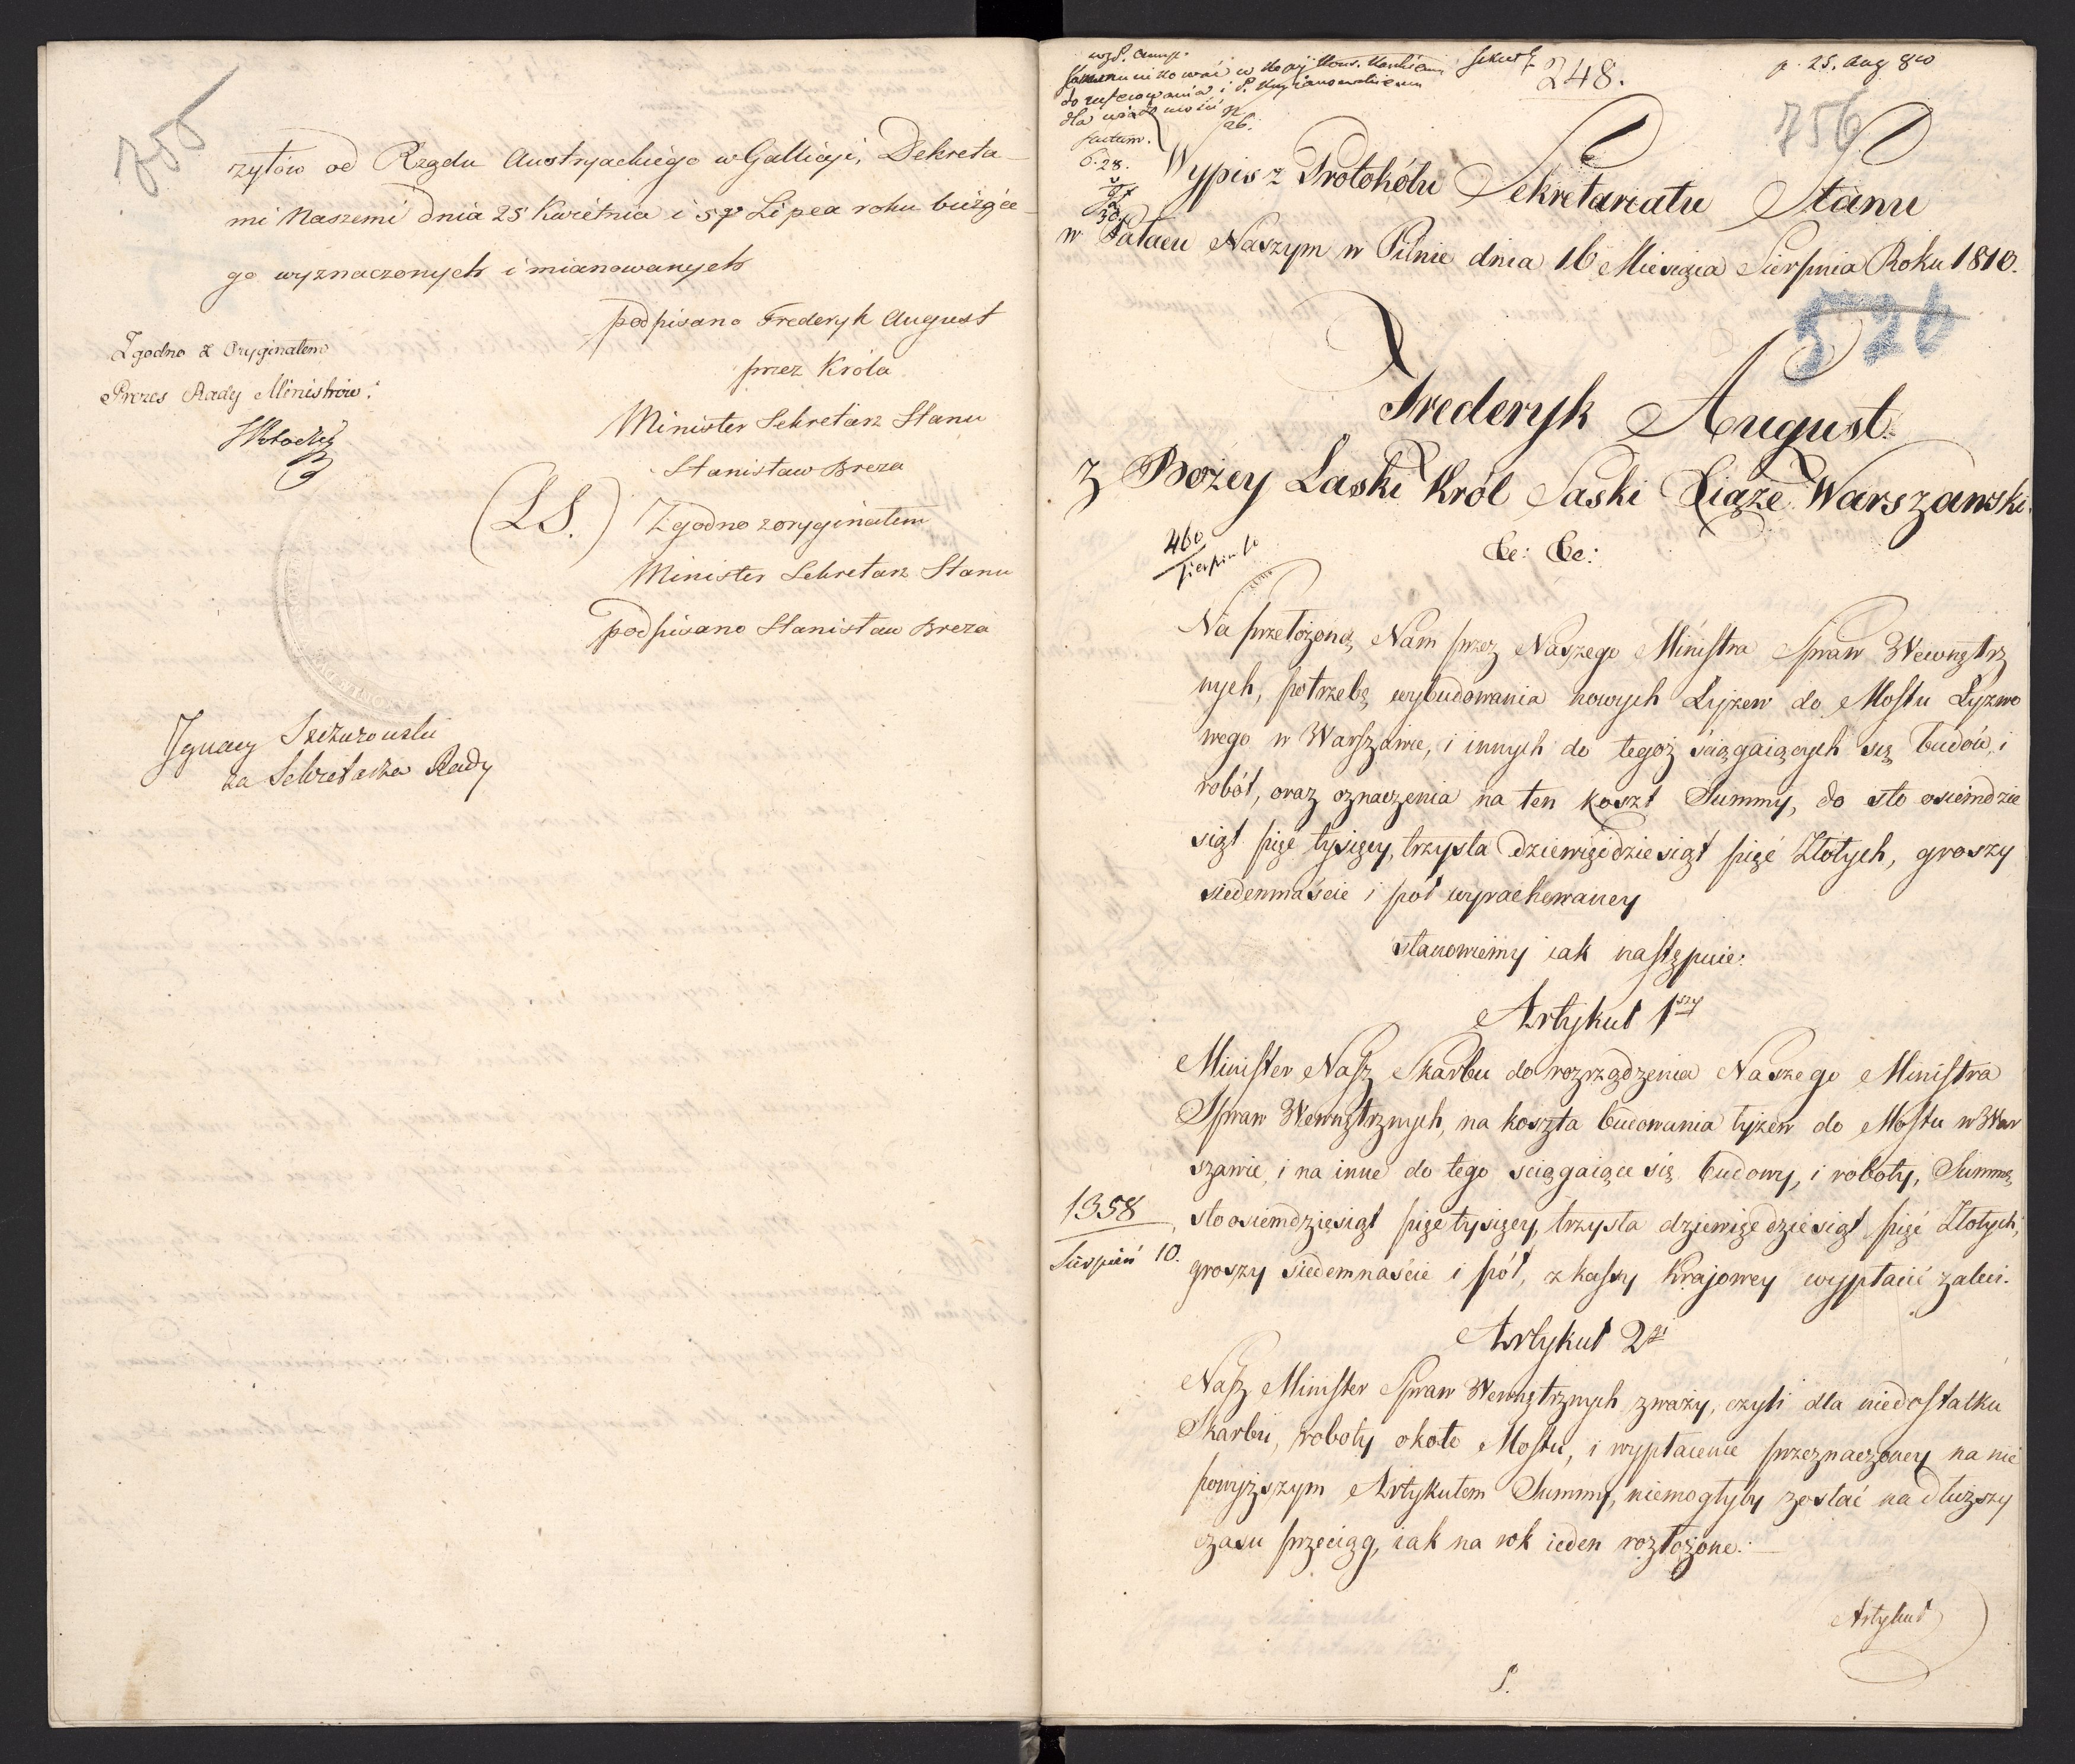 755
rzytów od Rządu Austryackiego w Gallicyi, Dekreta-
mi Naszemi dnia 25 Kwietnia i 5go Lipca roku bieżące-
go wyznaczonych i mianowanych
podpisano Frederyk August
przez Króla
Minister Sekretarz Stanu
Stanisław Breza
(LS.) Zgodno z oryginałem
Minister Sekretarz Stanu
podpisano Stanisław Breza
Zgodno z Oryginałem
Prezes Rady Ministrów:
Ignacy
za Sekretarza Rady
248.
p. 25. Aug 810
756
do
dla wiadomości
26.
factum.
28.
30
Wypis z Protokółu Sekretariatu Stanu
w Pałacu Naszym w Pilnie dnia 16 Miesiąca Sierpnia Roku 1810.
526
Frederyk August
z Bożey Łaski Król Saski Xiąże Warszawski
&c: &c:
460
Sierpień 10
Na przełożoną Nam przez Naszego Ministra Spraw Wewnętrz
nych, potrzebę wybudowania nowych Łyżew do Mostu Łyżwo
wego w Warszawie, i innych do tegoż ściągaiących się budów, i
robót, oraz oznaczenia na ten koszt Summy, do sto osiemdzie
siąt pięć tysięcy, trzysta dziewięćdziesiąt pięć Złotych, groszy
siedemnaście i pół wyrachowaney
stanowiemy iak następuie:
Artykuł 1szy
Minister Nasz Skarbu do rozrządzenia Naszego Ministra
Spraw Wewnętrznych, na koszta budowania łyżew do Mostu w War
szawie, i na inne do tego ściągaiące się budowy, i roboty, Summę
sto osiemdziesiąt pięć tysięcy, trzysta dziewięćdziesiąt pięć Złotych,
groszy siedemnaście i pół, z kassy Krajowey wypłacić zaleci.
1358
Sierpień 10.
Artykuł 2gi
Nasz Minister Spraw Wewnętrznych zważy, czyli dla niedostatku
Skarbu, roboty około Mostu, i wypłacenie przeznaczoney na nie
powyższym Artykułem Summy, niemogłyby zostać na dłuższy
czasu przeciąg, iak na rok ieden rozłożone.
Artykuł